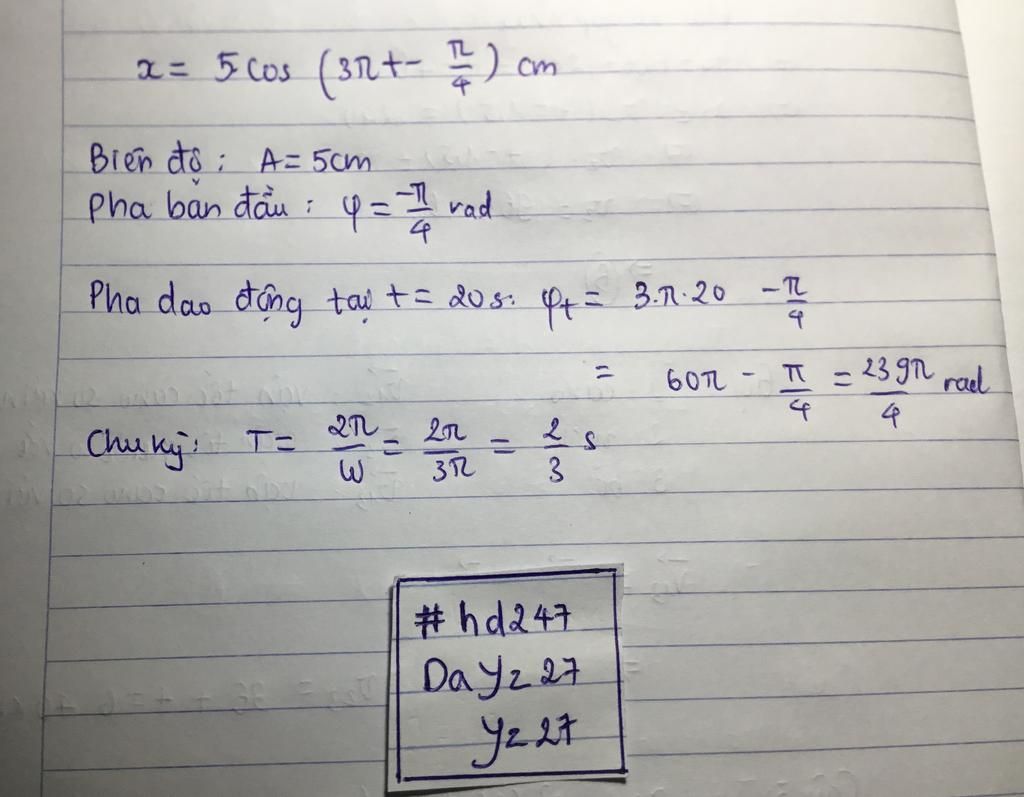 x = 5 cos (3πt - π/4) cm
Biên độ : A = 5cm
Pha ban đầu : φ = -π/4 rad
Pha dao động tại t = 20 s. φt = 3.π.20 - π/4
= 60π - π/4 = 239π/4 rad
Chu kỳ : T = 2π/ω = 2π/3π = 2/3 s
#hd247
DaYz27
Yz27